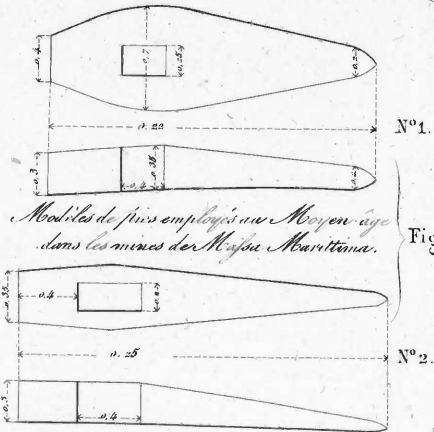 0.4
0.7
0.25
0.2
0.22
N° 1.
0.3
0.4
0.35
0.2
Modèles de pics employés au Moyen-âge
dans les mines de Massa Marittima.
Fig
0.35
0.4
0.25
N° 2.
0.3
0.4